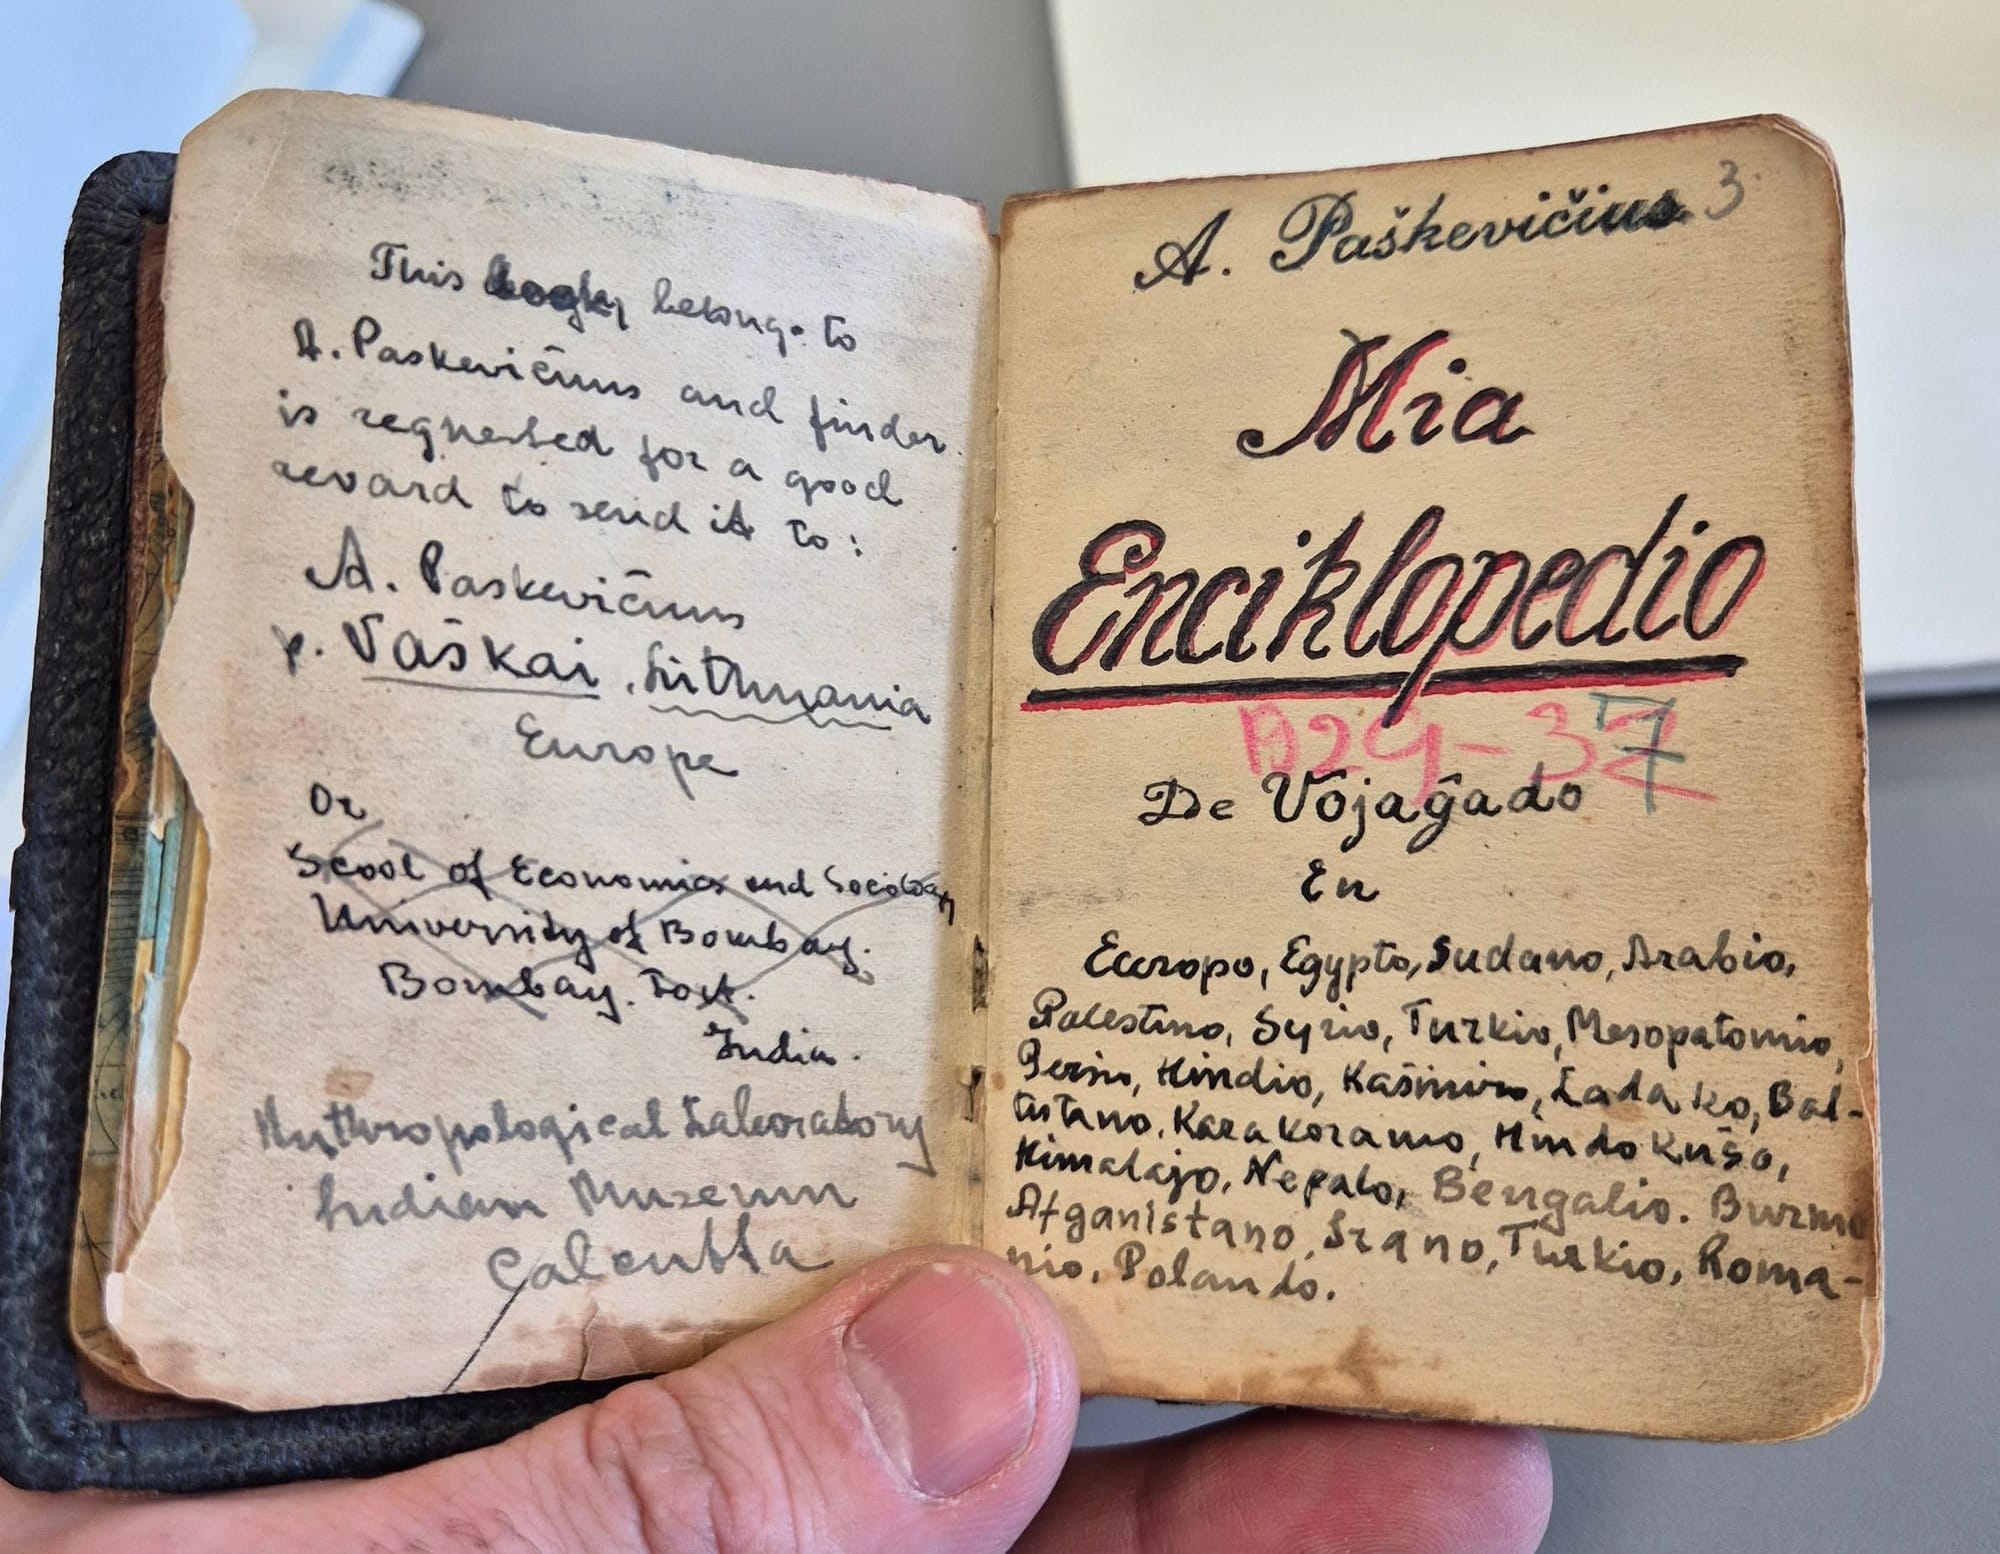 This belongs to
A. Paskevičius and finder
is requested for a good
revard to send it to:
A. Paskevičius
p. Vaškai, Lithuania
Europe
Or
Scool of Economics and Sociology
University of Bombay.
Bombay. Fort.
India.
Anthropological Laboratory
Indian Muzeum
Calcutta
A. Paškevičius 3
Mia
Enciklopedio
De Vojaĝado
En
Europo, Egypto, Sudano, Arabio,
Palestino, Syrio, Turkio, Mesopotamio,
Persio, Hindio, Kašmiro, Ladako, Bal-
tistano, Karakoramo, Hindo Kušo,
Himalajo, Nepalo, Bengalio. Burmo
Afganistano, Irano, Turkio, Roma-
nio, Polando.